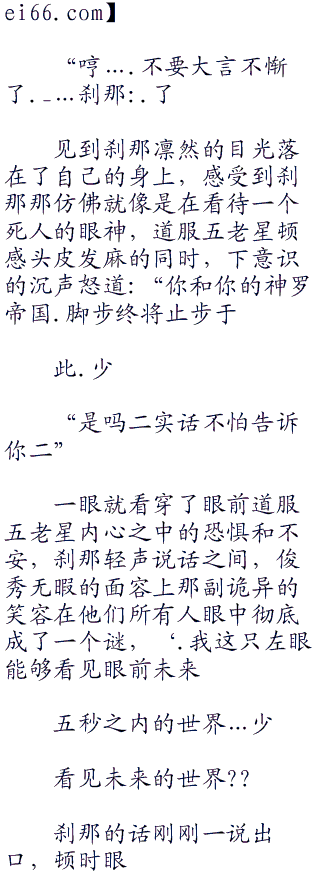 ei66.com】
“哼….不要大言不惭
了._…刹那:.了
见到刹那凛然的目光落
在了自己的身上，感受到刹
那那仿佛就像是在看待一个
死人的眼神，道服五老星顿
感头皮发麻的同时，下意识
的沉声怒道：“你和你的神罗
帝国.脚步终将止步于
此.少
“是吗二实话不怕告诉
你二”
一眼就看穿了眼前道服
五老星内心之中的恐惧和不
安，刹那轻声说话之间，俊
秀无暇的面容上那副诡异的
笑容在他们所有人眼中彻底
成了一个谜，‘.我这只左眼
能够看见眼前未来
五秒之内的世界…少
看见未来的世界??
刹那的话刚刚一说出
口，顿时眼